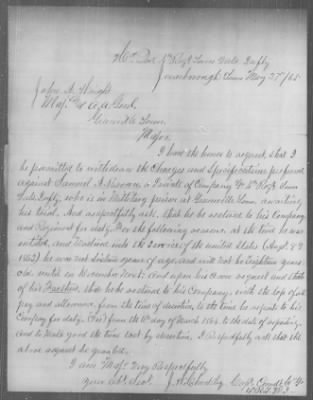 Hd Qrs 4th Regt Tenn Vols Infty
Jonesborough Tenn May 27 /65
John A. Wright
Maj & A A Genl
Greenville Tenn
Major
I have the honor to request that I
be permitted to withdraw the Charges and Specifications preferred
against Samuel a Private of Company 4th Regt Tenn
Vols Infty, who is in Military prison at Greenville Tenn, awaiting
his trial. And respectfully ask, that he be restored to his Company
and Regiment for duty. For the following reasons, at the time he was
enlisted, and Mustered into the Service of the united States
1862) he was not Sixteen years of age, and will not be Eighteen years
old, until in November Next: And upon his own request and that
of his that he be restored to his Company, with the loss of all
pay and allowance from the time of desertion, to the time he reports to his
Company for duty. from the 10th day of March 1864, to the date of reporting,
and to Make good the time lost by desertion. I Respectfully ask that the
above request be granted.
I am Maj. Very Respectfully
Your Obt. Servt.